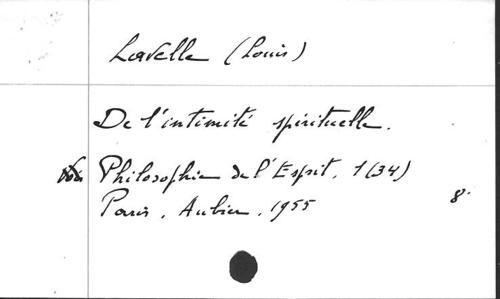 Lavelle (Louis)
De l'intimité spirituelle.
Voir Philosophie de l'Esprit, 1(34)
Paris, Aubier, 1955 8°